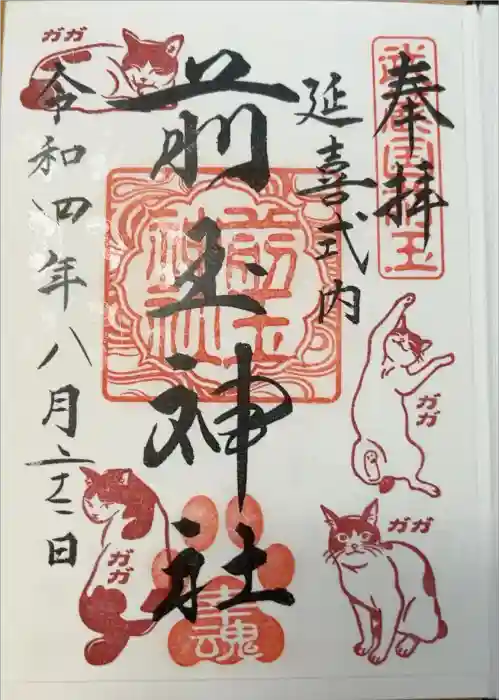 奉拝
武蔵国埼玉
延喜式内
前玉神社
前玉
神社
幸魂
令和四年八月 日
ガガ
ガガ
ガガ
ガガ